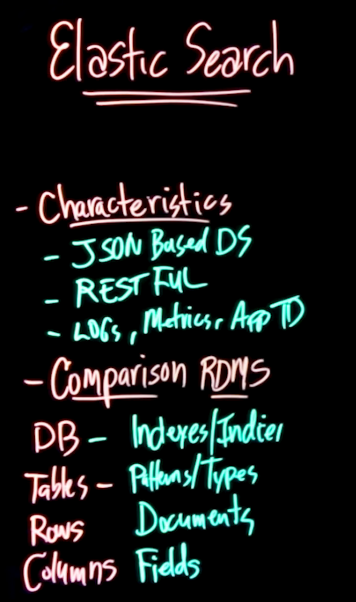 Elastic Search
- Characteristics
- JSON Based DS
- RESTFUL
- LOGs, Metrics, App TD
- Comparison RDMS
DB - Indexes/Indices
Tables - Patterns/Types
Rows Documents
Columns Fields